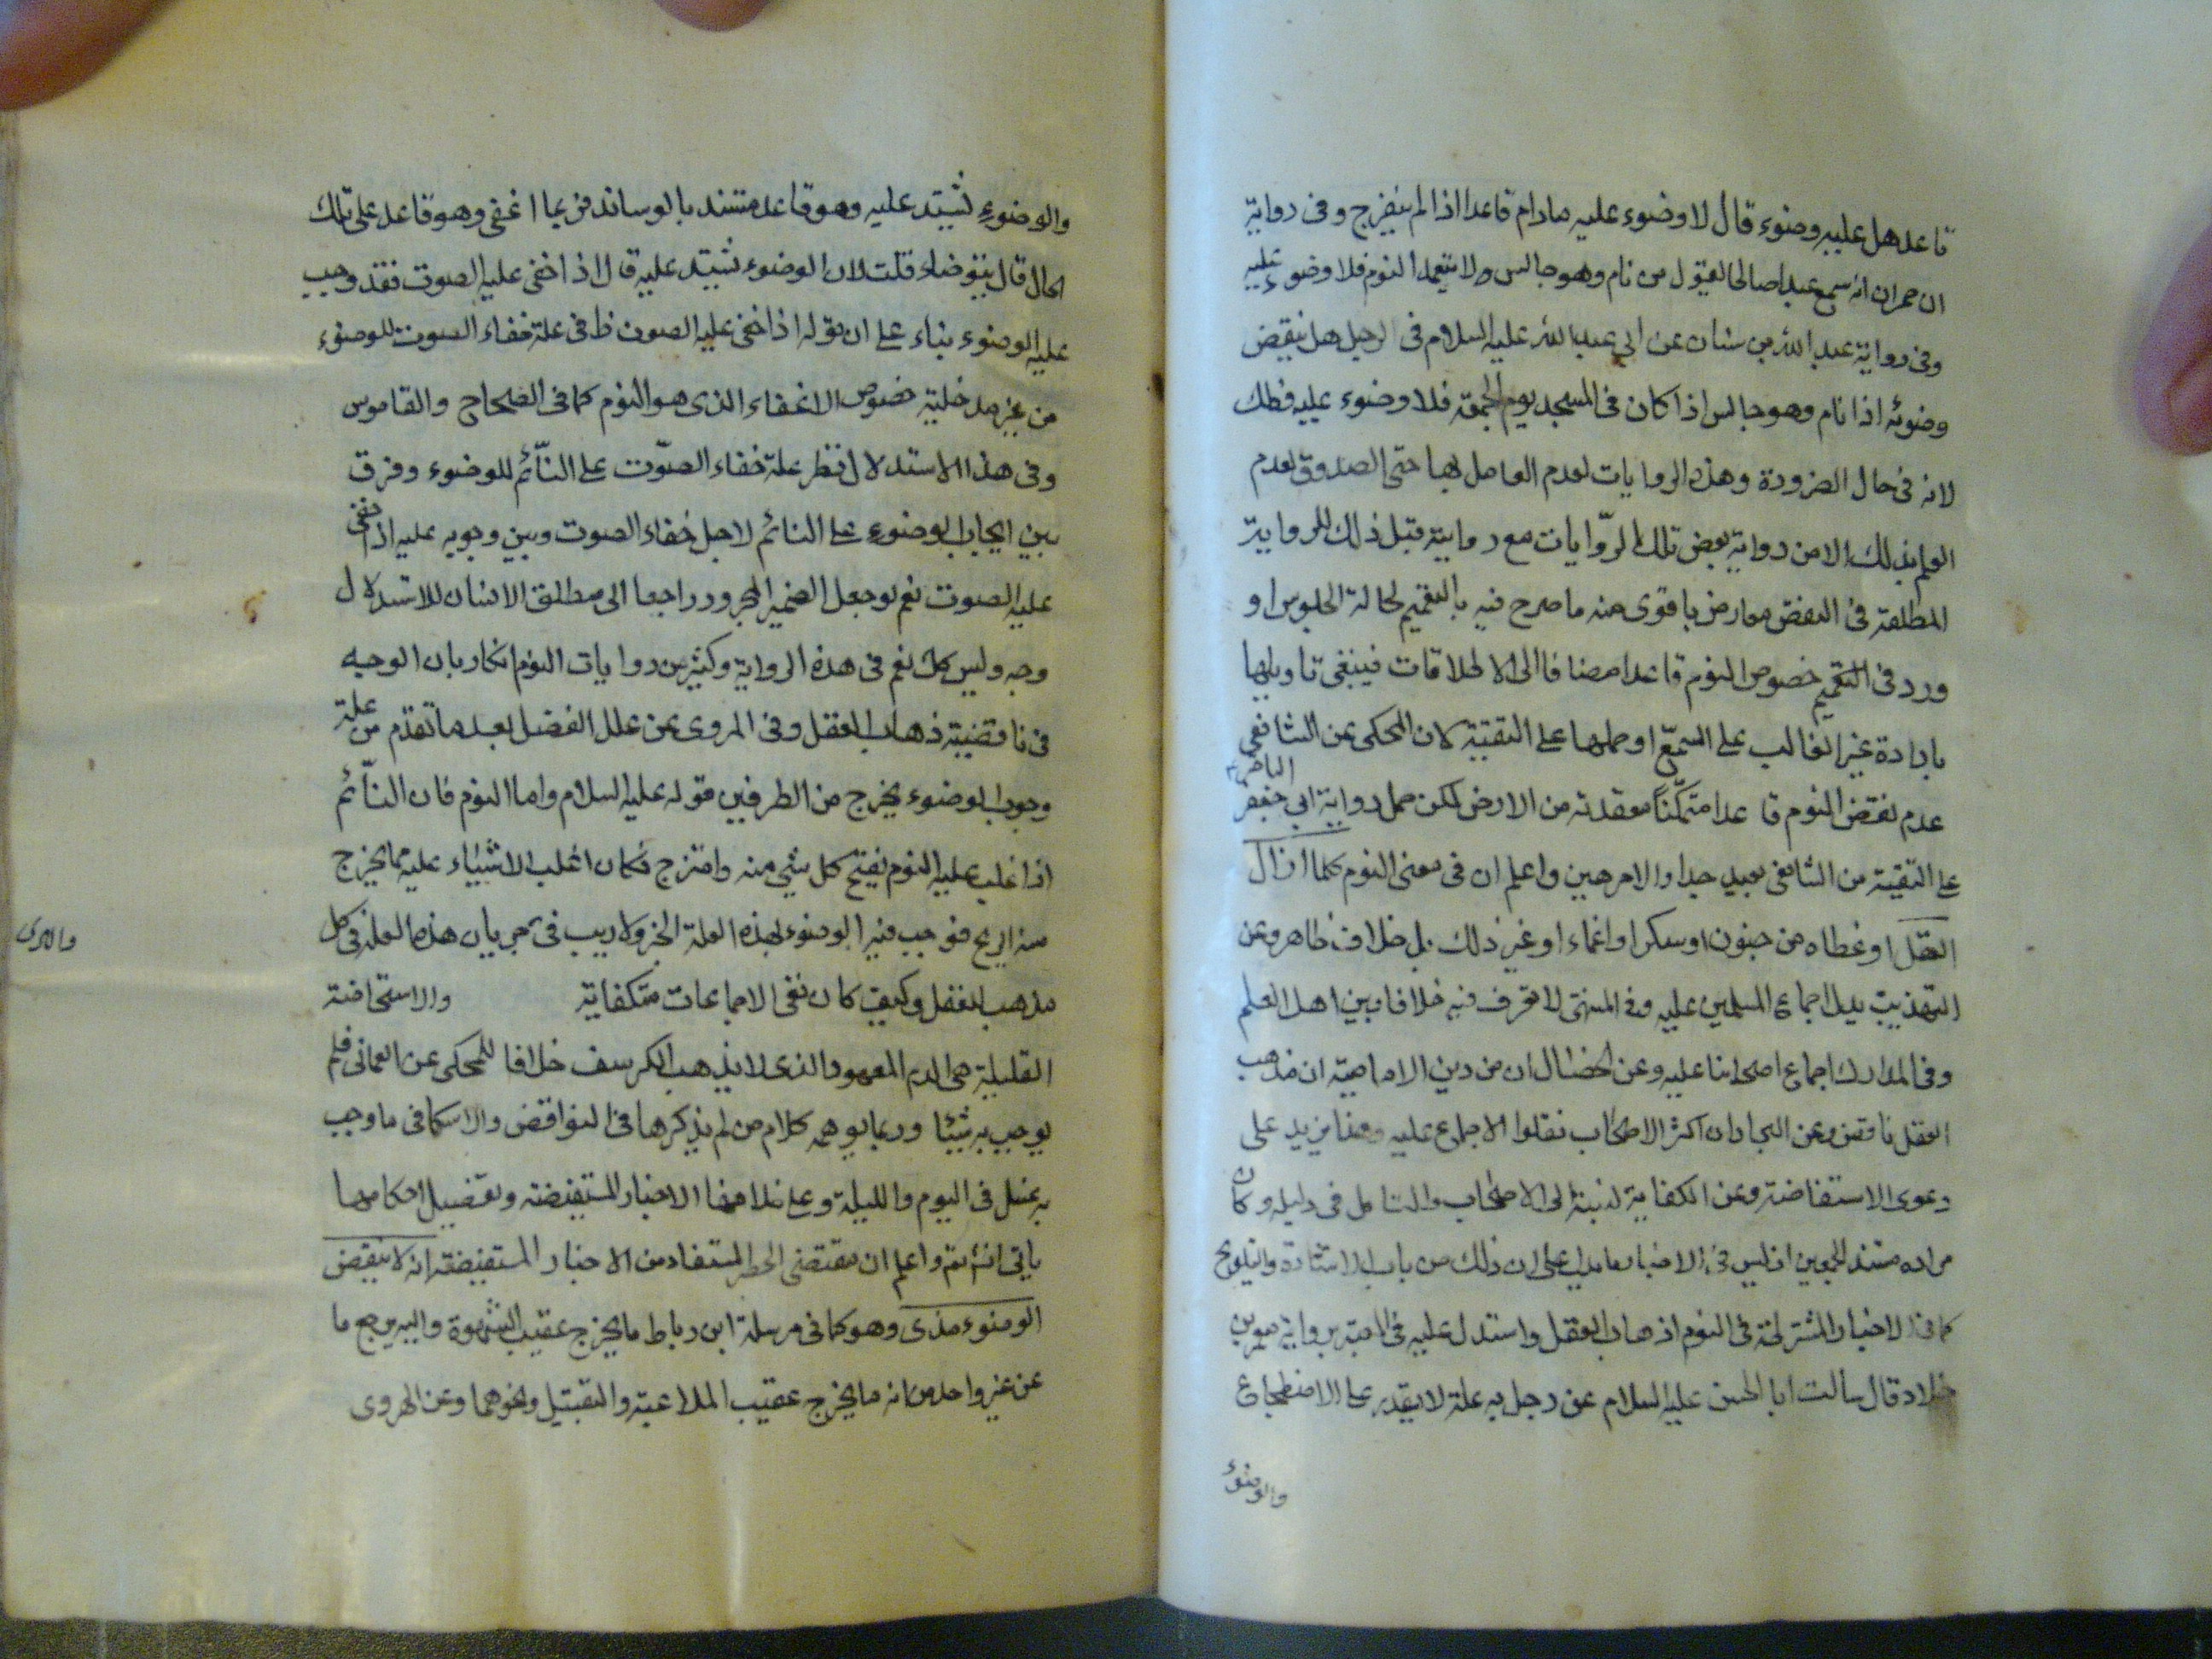 قاعد هل عليه وضوء قال لا وضوء عليه مادام قاعدا اذا لم ينفرج وفى رواية
ان حمران انه سمع عبدا صالحا يقول من نام وهو جالس ولا يتعمد النوم فلا وضوء عليه
وفى رواية عبد الله بن سنان عن ابى عبد الله عليه السلام فى الرجل هل ينقض
وضوئه اذا نام وهو جالس اذا كان فى المسجد يوم الجمعة فلا وضوء عليه فذلك
لانه فى حال الضرورة وهذه الروايات لعدم العامل بها حتى الصدوق لعدم
العلم بذلك الا من رواية بعض تلك الروّايات مع روايته قبل ذلك للرواية
المطلقة فى النقض معارض باقوى منه ما صرح فيه بالتعميم لحالة الجلوس او
ورد فى التعميم خصوص النوم قاعدا مضافا الى الاطلاقات فينبغى تاويلها
بارادة غير الغالب على السمع او حملها على التقية لان المحكى عن الشافعى
عدم نقض النوم قاعدا متمكّناً مقعدته من الارض لكن حمل رواية ابى جعفر الباقر
على التقية من الشافعى بعيد جدا والامر هين واعلم ان فى معنى النوم كلما ازال
العقل او غطاه من جنون او سكر او اغماء او غير ذلك بل خلاف ظاهر وعن
التهذيب يدل اجماع المسلمين عليه وفى المنتهى لا نعرف فيه خلافا وبين اهل العلم
وفى المدارك اجماع اصحابنا عليه وعن الخصال ان من دين الامامية ان مذهب
العقل ناقض وعن البحار ان اكثر الاصحاب نقلوا الاجماع عليه وهذا يزيد على
دعوى الاستفاضة وعن الكفاية نسبة الى الاصحاب والتامل فى دليله وكان
مراده مستند المجمعين اذ ليس فى الاخبار ما يدل على ان ذلك من باب الاشارة والتلويح
كما فى الاخبار المشترطة فى النوم اذهاب العقل واستدل عليه فى المعتبر برواية معمر بن
خلاد قال سالت ابا الحسن عليه السلام عن رجل به علة لا يقدر على الاضطجاع
والوضوء
والوضوء يشتد عليه وهو قاعد مستند بالوسائد فربما اغفى وهو قاعد على تلك
الحال قال يتوضاء قلت لان الوضوء يشتد عليه قال اذا خفى عليه الصوت فقد وجب
عليه الوضوء بناء على ان قوله اذا خفى عليه الصوت ظ فى علة خفاء الصوت للوضوء
من غير مدخلية خصوص الاغفاء الذى هو النوم كما فى الصحاح والقاموس
وفى هذا الاستدلال نظر علة خفاء الصّوت على النّائم للوضوء وفرق
بين ايجاب الوضوء على النائم لاجل خفاء الصوت وبين وجوبه عليه اذا خفى
عليه الصوت نعم لو جعل الضمير المجرور راجعا الى مطلق الانسان للاستدلال
وجه وليس كك نعم فى هذه الرواية وكثير من روايات النوم اشكار بان الوجه
فى ناقضيته ذهاب العقل وفى المروى عن علل الفضل بعد ما تقدم من علة
وجوب الوضوء يخرج من الطرفين قوله عليه السلام واما النوم فان النّائم
اذا غلب عليه النوم يفتح كل شئ منه واسترخ فكان اغلب الاشياء عليه مما يخرج
منه الريح فوجب فيه الوضوء لهذه العلة الخبر ولا ريب فى جريان هذه العلة فى كل
مذهب للعقل وكيف كان نفى الاجماعات متكفاية والاستحاضة
القليلة هى الدم المعهود الذى لا يذهب الكرسف خلافا للمحكى عن العمانى فلم
يوجب به شيئا وربما يوهمه كلام من لم يذكرها فى النواقض والاسكافى ما وجب
به غسل فى اليوم والليلة وعلى خلافهما الاخبار المستفيضة وتفصيل احكامها
ياتى انشاء تم واعلم ان مقتضى الحصر المستفاد من الاخبار المستفيضة انه لا ينقض
الوضوء مذى وهو كما فى مرسلة ابن رباط ما يخرج عقيب الشهوة واليه يرجع ما
عن غير واحد من انه ما يخرج عقيب الملاعبة والتقبيل ونحوهما وعن الهروى